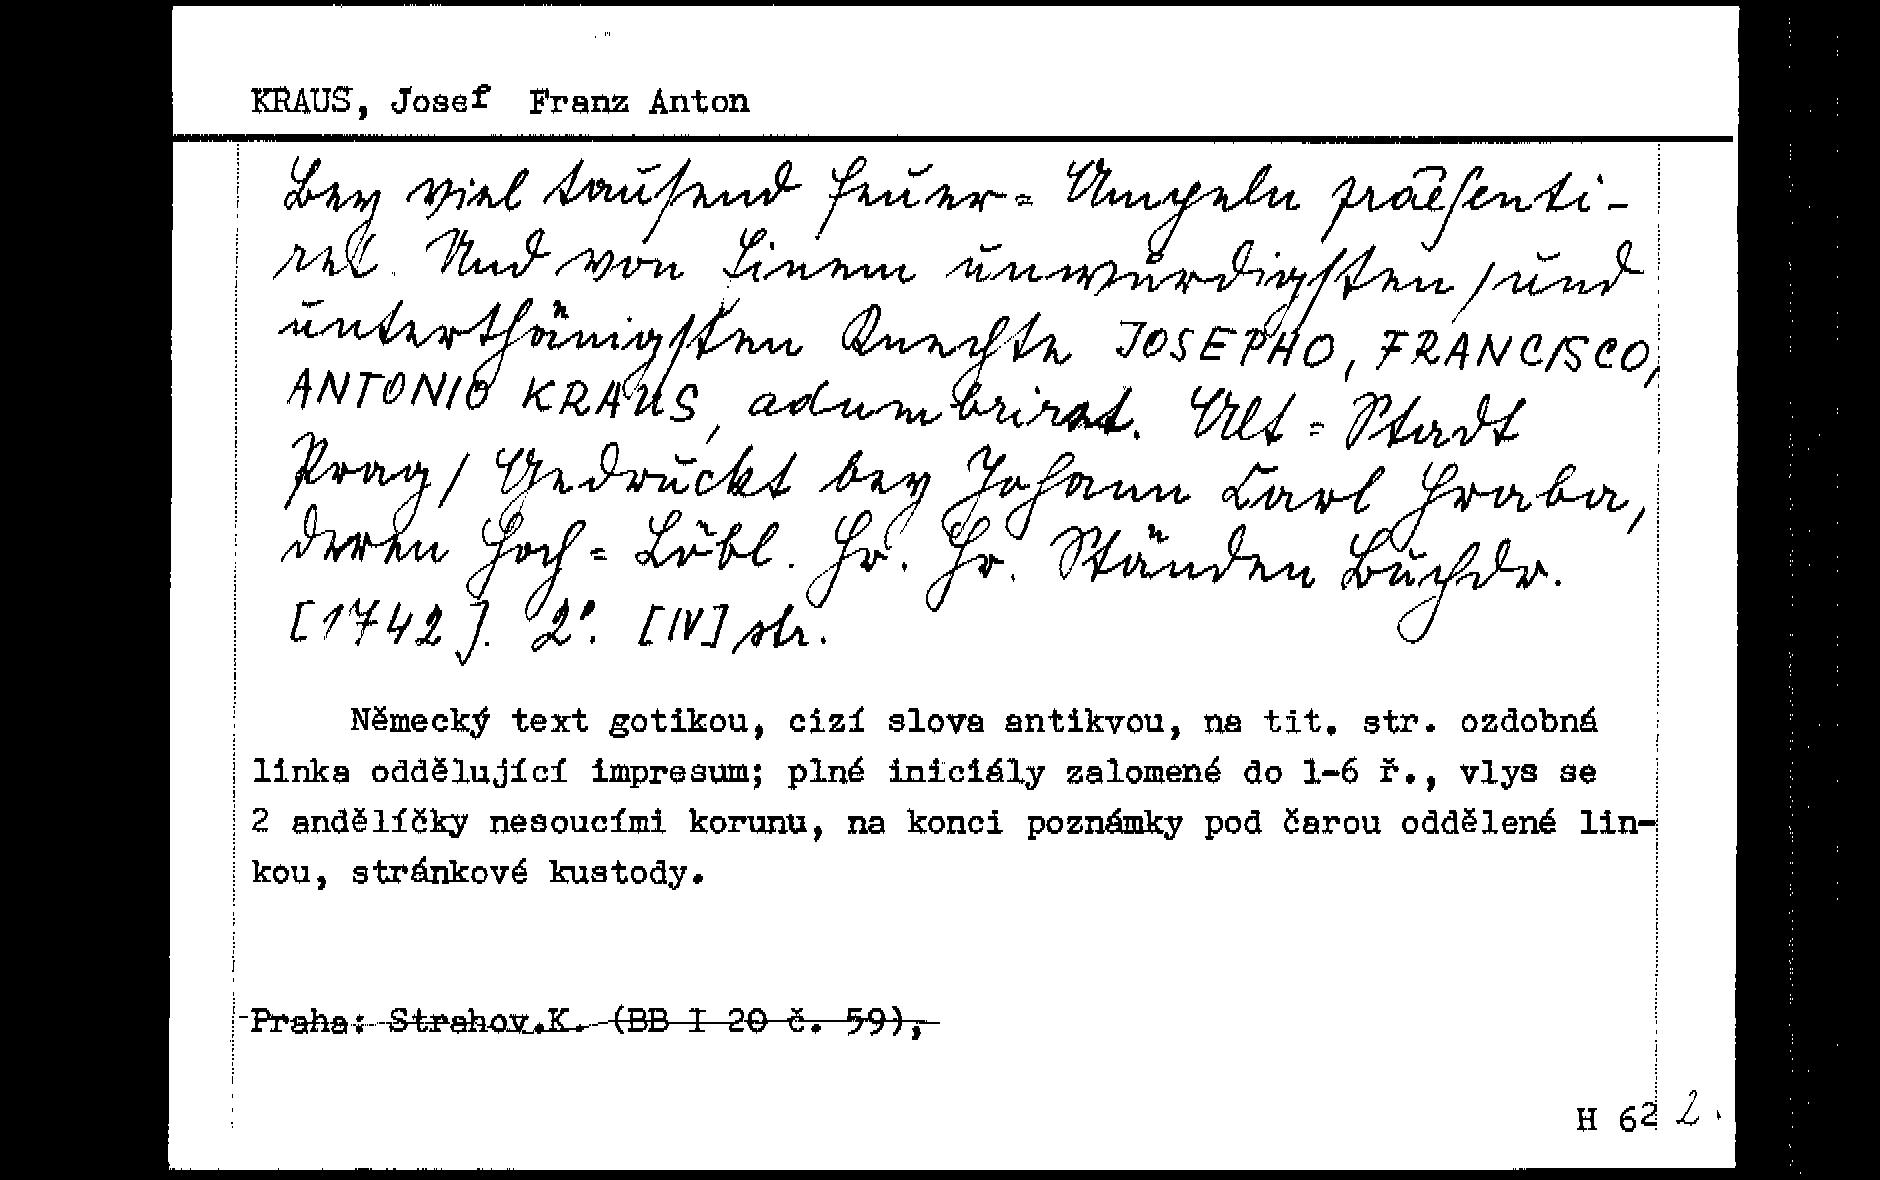 KRAUS, Josef Franz Anton
Bey viel tausend Feuer= Ampeln præsenti-
ret. Und von Einem unwürdigsten / und
unterthänigsten Knechte JOSEPHO, FRANCISCO,
ANTONIO KRAUS, adumbriret. Alt = Stadt
Prag / Gedruckt bey Johann Carl Hraba,
deren Hoch = Löbl. Hr. Hr. Ständen Buchdr.
[1742]. 2°. [IV] str.
Německý text gotikou, cizí slova antikvou, na tit. str. ozdobná
linka oddělující impresum; plné iniciály zalomené do 1-6 ř., vlys se
2 andělíčky nesoucími korunu, na konci poznámky pod čarou oddělené lin-
kou, stránkové kustody.
Praha: Strahov.K. (BB I 20 č. 59),
H 62 2.